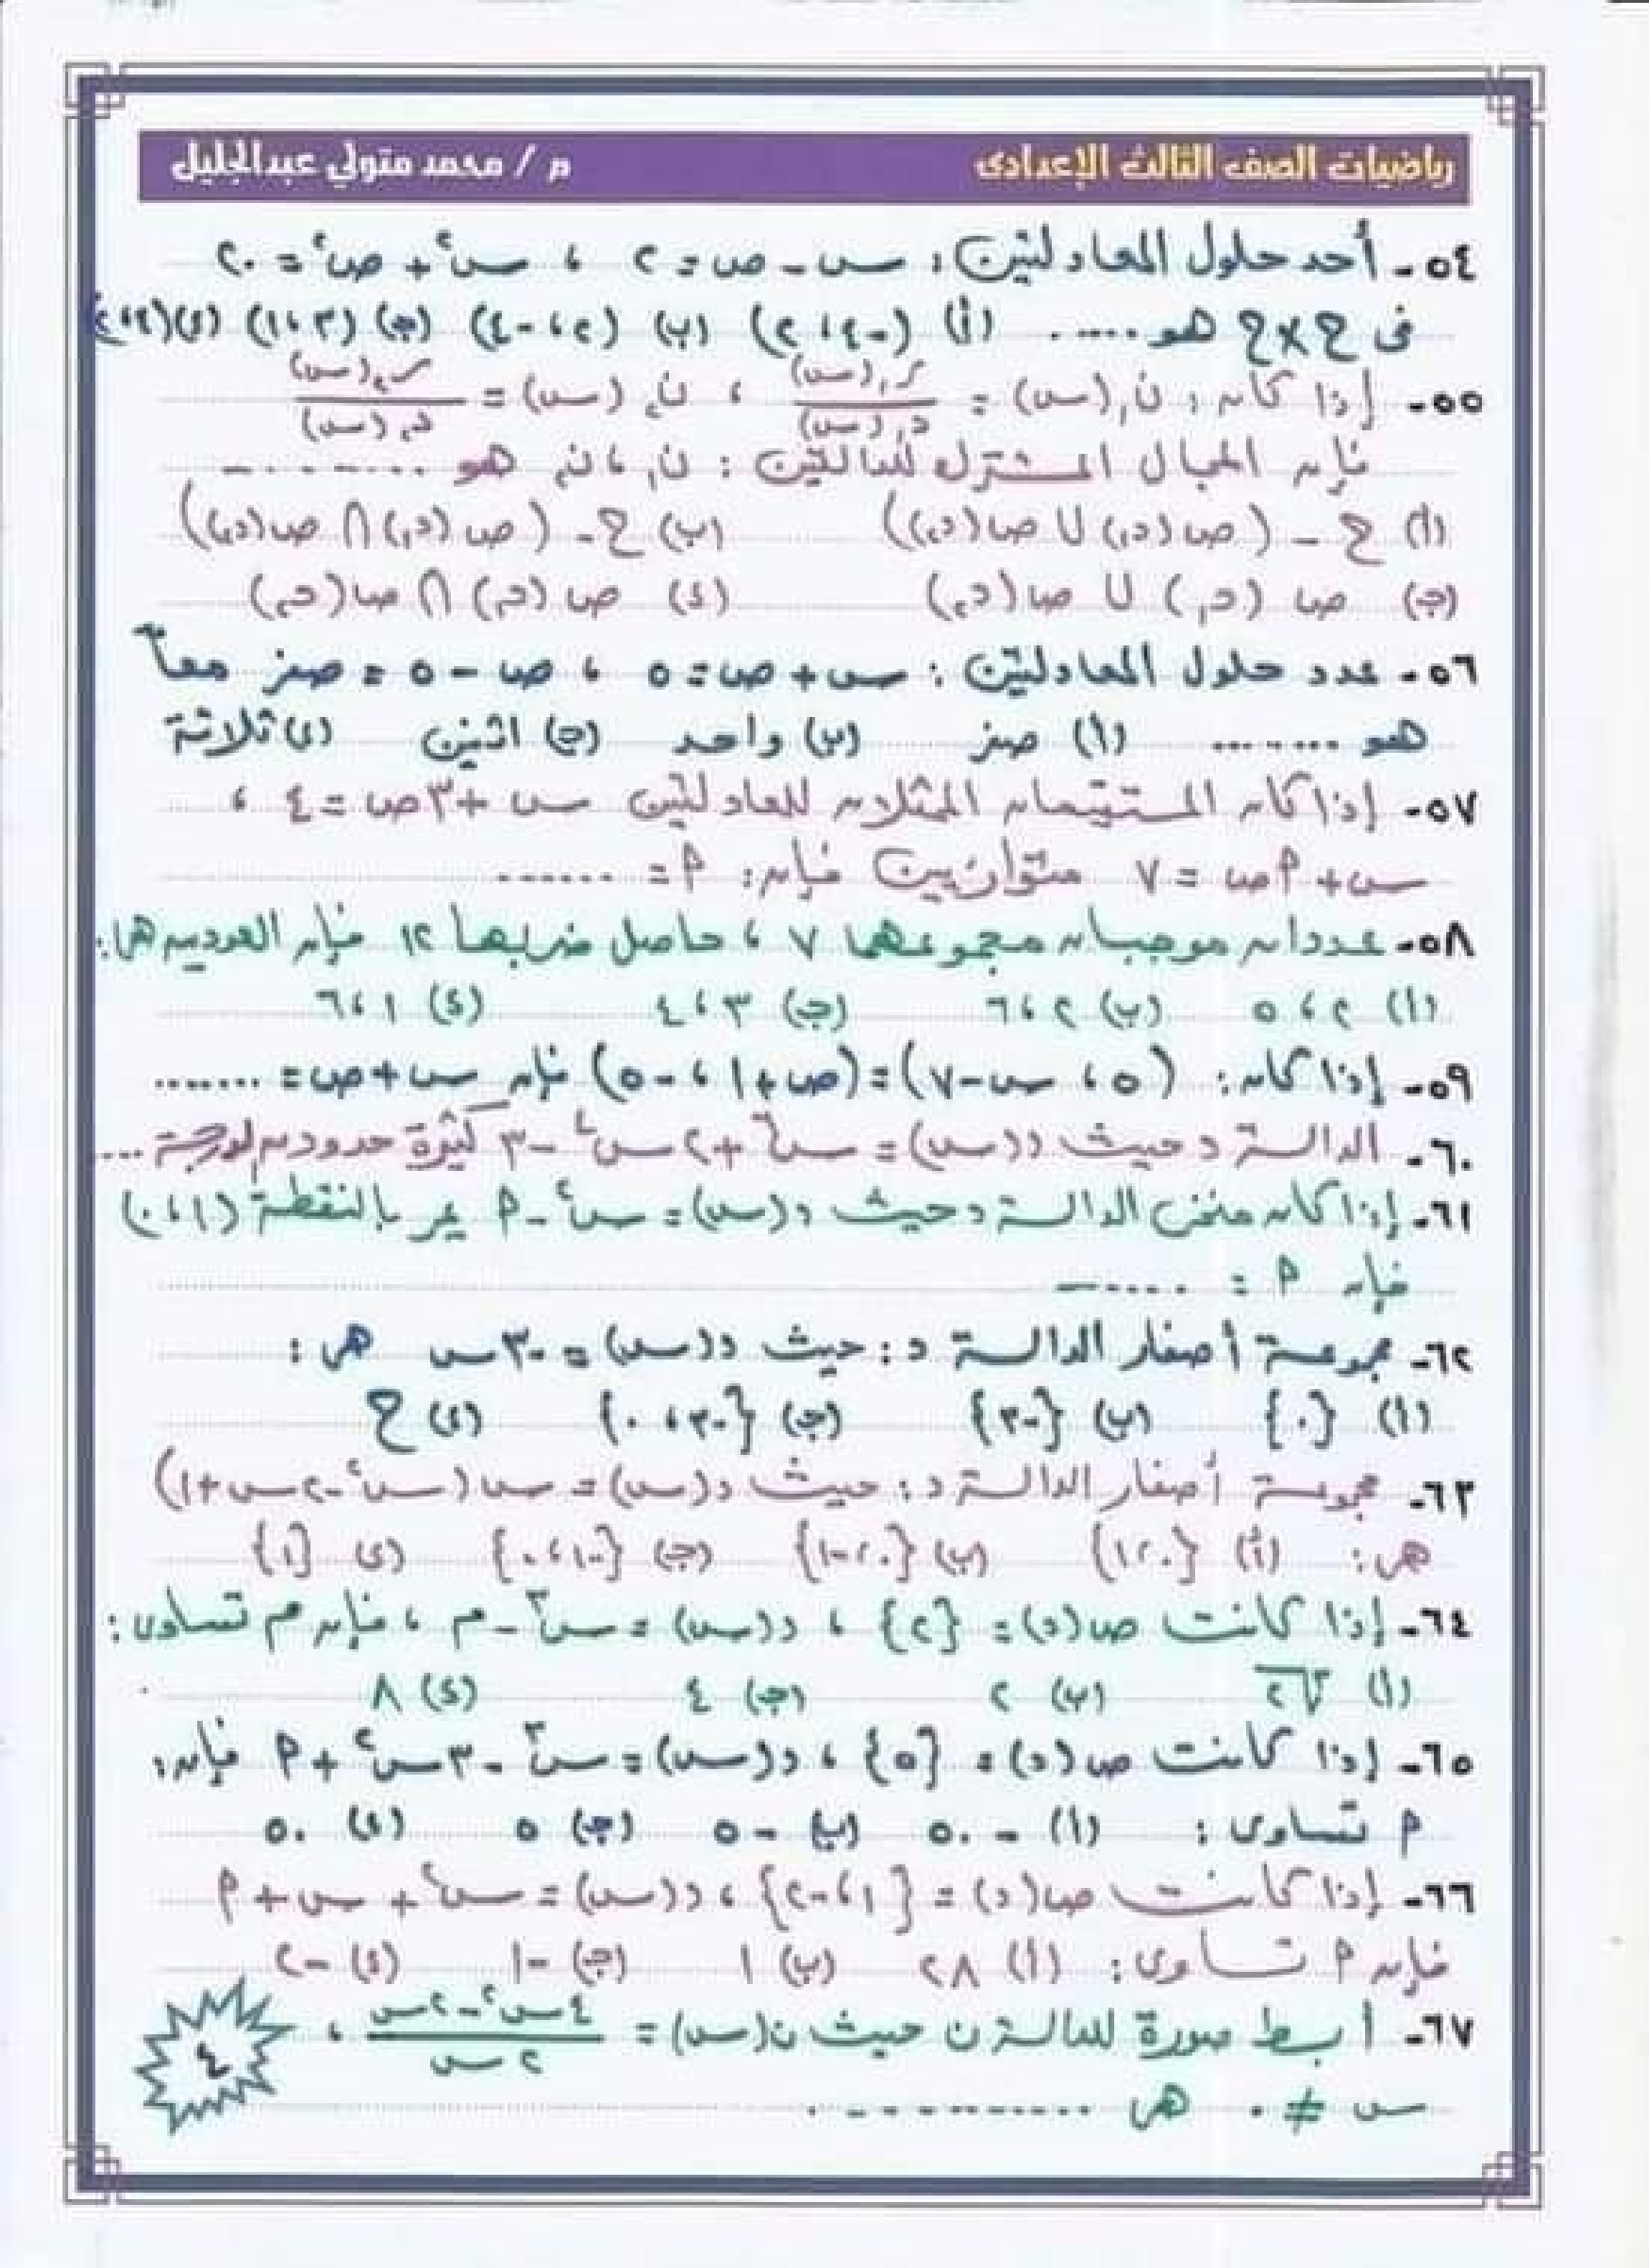 رياضيات الصف الثالث الإعدادى
م / محمد متولي عبدالجليل
٥٤- أحد حلول المعادلتين : س - ص = ٢ ، س² + ص² = ٢٠
فى ح × ح هو ..... (أ) (-٤ ، ٢) (ب) (٢ ، -٤) (ج) (٣ ، ١) (د) (٤ ، ٢)
٥٥- إذا كان : ن₁(س) = ر₁(س)/د₁(س) ، ن₂(س) = ر₂(س)/د₂(س)
فإن المجال المشترك للدالتين : ن₁ ، ن₂ هو ........
(أ) ح - (ص(د₁) ∪ ص(د₂)) (ب) ح - (ص(د₁) ∩ ص(د₂))
(ج) ص(د₁) ∪ ص(د₂) (د) ص(د₁) ∩ ص(د₂)
٥٦- عدد حلول المعادلتين : س + ص = ٥ ، ص - ٥ = صفر معاً
هو ........ (أ) صفر (ب) واحد (ج) اثنين (د) ثلاثة
٥٧- إذا كان المستقيمان الممثلان للمعادلتين س + ٣ص = ٤ ،
س + ٢ص = ٧ متوازيين فإن : ٢ = ......
٥٨- عددان موجبان مجموعهما ٧ ، حاصل ضربهما ١٢ فإن العددين هما :
(أ) ٢ ، ٥ (ب) ٢ ، ٦ (ج) ٣ ، ٤ (د) ١ ، ٦
٥٩- إذا كان : (٥ ، س - ٧) = (ص + ١ ، -٥) فإن س + ص = .......
٦٠- الدالة د حيث د(س) = س³ + ٢س² - ٣ كثيرة حدود من الدرجة ...
٦١- إذا كان منحنى الدالة د حيث د(س) = س² - م يمر بالنقطة (١ ، ٠)
فإن م = ......
٦٢- مجموعة أصفار الدالة د : حيث د(س) = -٣س هى :
(أ) {٠} (ب) {-٣} (ج) {-٣ ، ٠} (د) ح
٦٣- مجموعة أصفار الدالة د : حيث د(س) = س(س² - ٢س + ١)
هى : (أ) {٠ ، ١} (ب) {٠ ، -١} (ج) {-١ ، ٠} (د) {١}
٦٤- إذا كانت ص(د) = {٢} ، د(س) = س³ - م ، فإن م تساوى :
(أ) ∛٢ (ب) ٢ (ج) ٤ (د) ٨
٦٥- إذا كانت ص(د) = {٥} ، د(س) = س³ - ٣س² + م فإن :
م تساوى : (أ) -٥٠ (ب) -٥ (ج) ٥ (د) ٥٠
٦٦- إذا كانت ص(د) = {١ ، -٢} ، د(س) = س² + س + م
فإن م تساوى : (أ) ٢٨ (ب) ١ (ج) -١ (د) -٢
٦٧- أبسط صورة للدالة ن حيث ن(س) = (٤س² - ٢س)/٢س ،
س ≠ ٠ هى ..........
٤